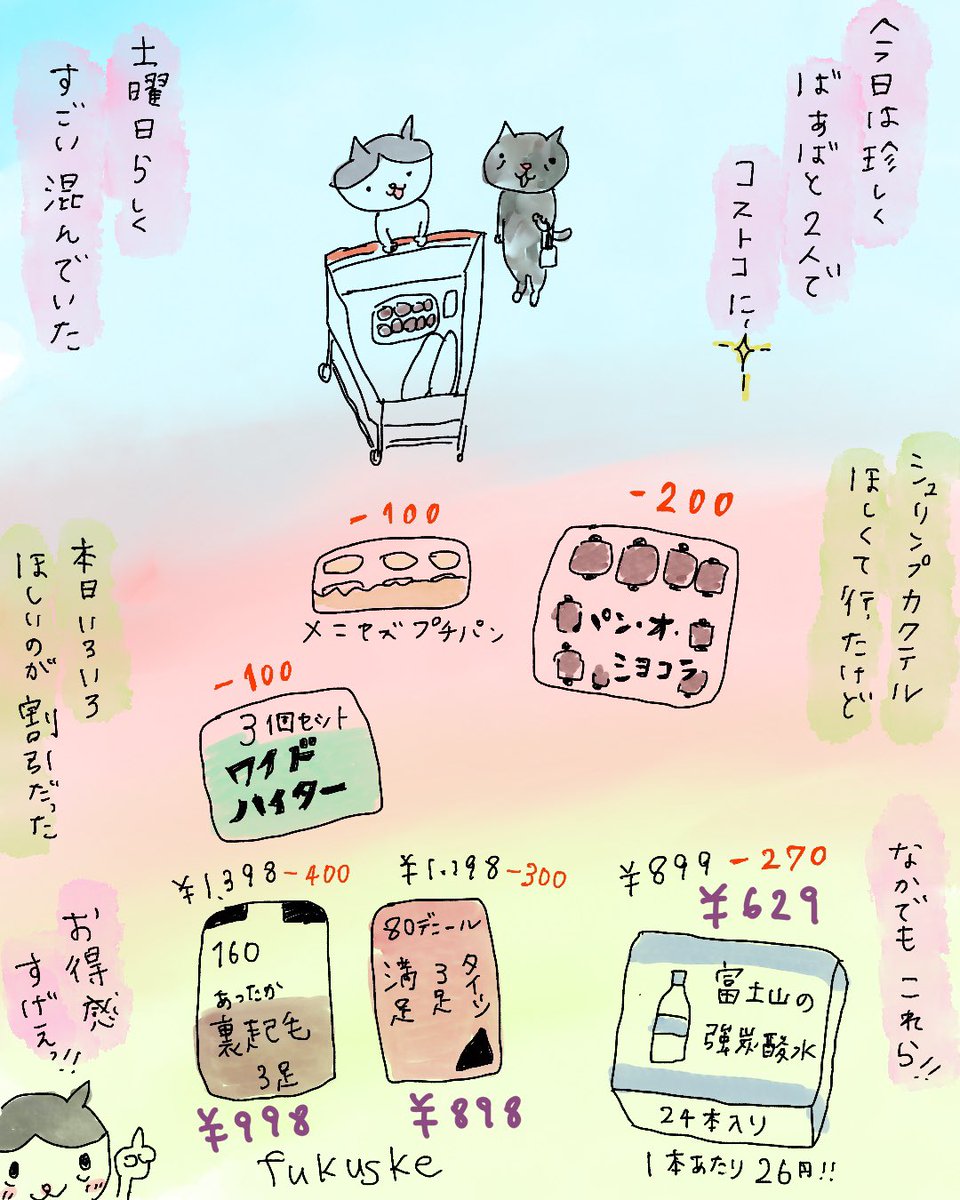 今日は珍しく
ばぁばと2人で
コストコに、
土曜日らしく
すごい混んでいた
シュリンプカクテル
ほしくて行ったけど
本日いろいろ
ほしいのが割引だった
-200
パン・オ・
ショコラ
-100
メニセズプチパン
-100
3個セット
ワイド
ハイター
なかでもこれら!!
¥899 -270
¥629
富士山の
強炭酸水
24本入り
1本あたり26円!!
¥1.198 -300
80デニール
タイツ
3足
満足
¥898
¥1.398 -400
160
あったか
裏起毛
3足
¥998
お得感
すげえっ!!
fukuske